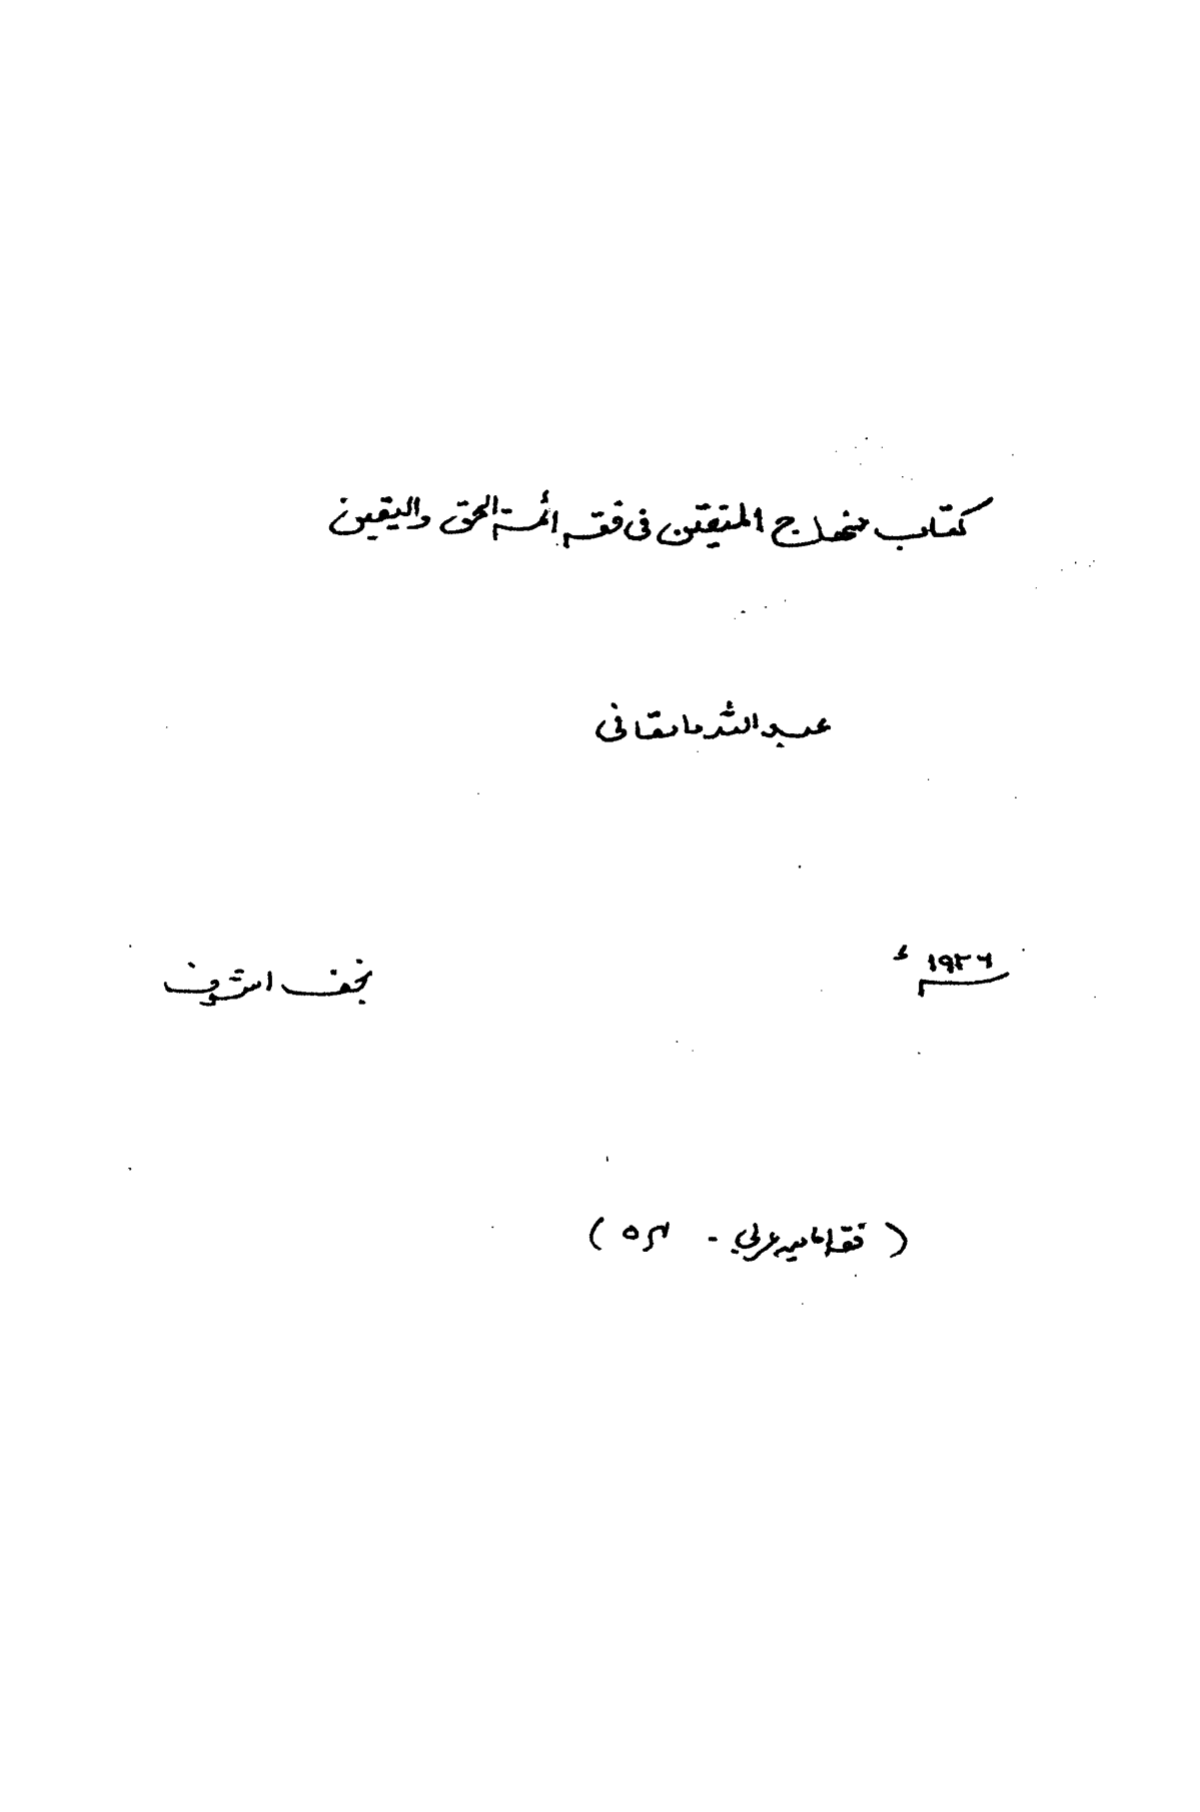 كتاب منهاج المتيقين فى فقه ائمة الحق واليقين
عبد الله مامقانى
١٩٢٦ ء
نجف اشرف
( فقه اماميه عربي -